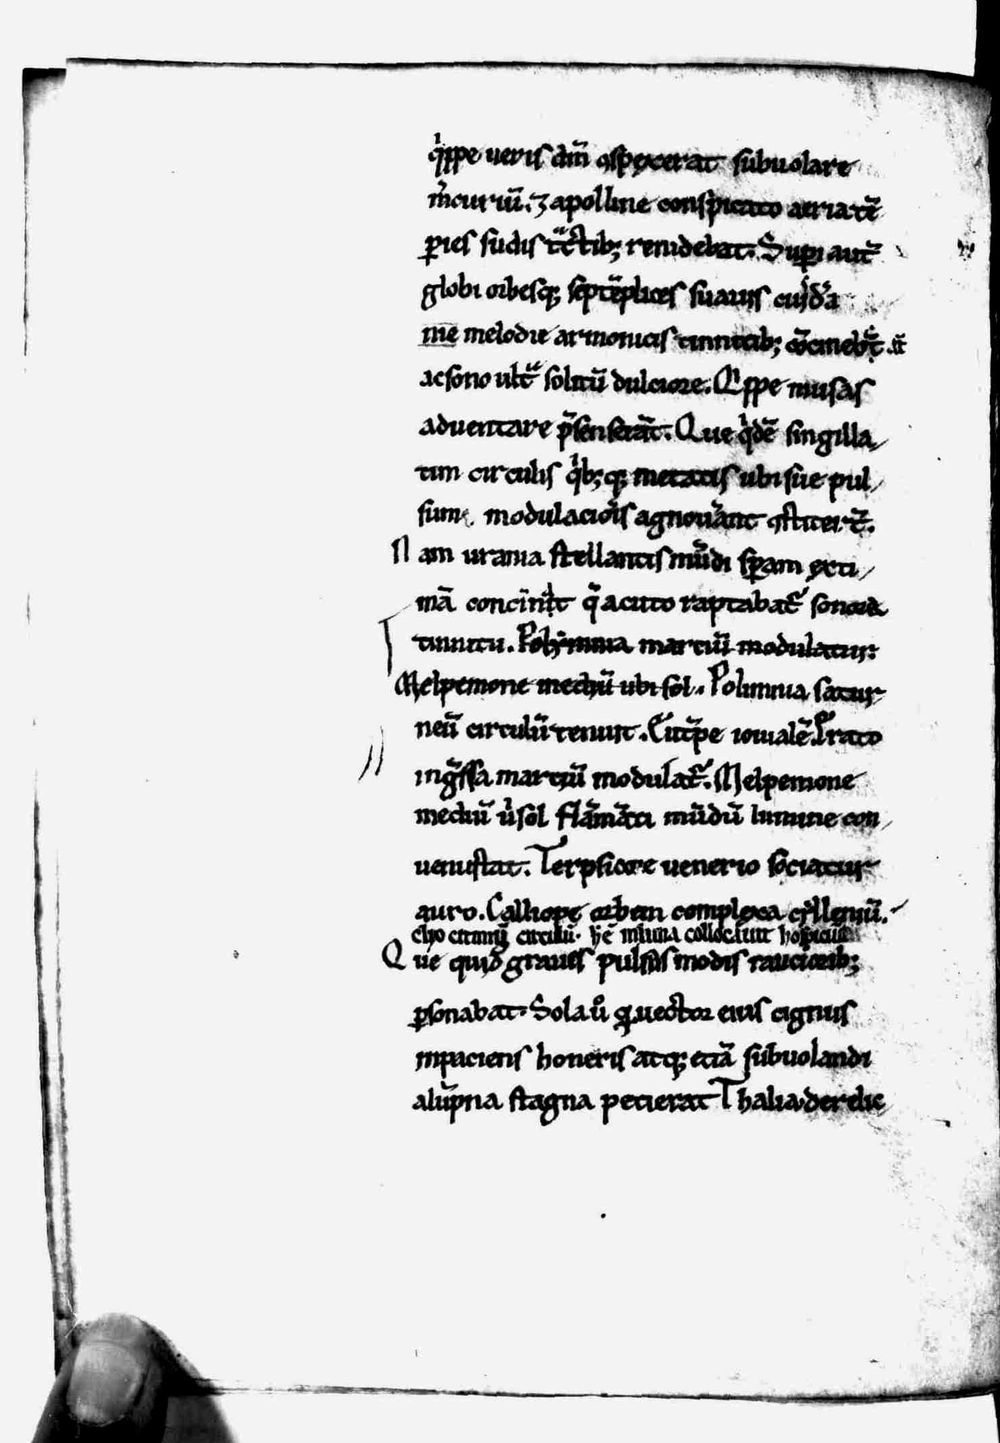 q̍ppe ueris dn̄i ꝯspexerat subuolare
m̍curiū. ⁊ apolline conspicato aeria tē
ꝑies sudis tͣctib; renidebat. Suꝑi aut̄
globi orbesq; septēplices suauis cuiꝰdā
me melodie armonicis tinnitib; ꝯcinebāt. 
ac sono ultͣ solitū dulciore. Q̍ppe musas
aduentare p̄senserāt. Que q̍dē singilla
tim circulis q̍b;q; metatis ubi sue pul
sum modulaciōis agnouāt ꝯstitert̄.
Nam urania stellantis mūdi speram exti
mā concinit q̄ acuto raptabat᷑ sonora
tinnitu. Polymnia marciū modulatur.
Melpemone mediū ubi sol. Polimnia satur
neū circulū tenuit. Eutͣpe iouialē. Erato
ingͣssa marciū modulat᷑. Melpemone
mediū u̍ sol flāmāti mūdū lumine con
uenustat. Terpsicore uenerio sociatur
auro. Calliope orbem complexa cylleniū.
clyo citimū circulū. hē in luna collocauit hospiciū
Que quid graues pulsus modis raucioribꝫ
ꝑsonabat. Sola u̍o ꝙ uector eius cignus
inpaciens honeris atq; eciā subuolandi
alūpna stagna pecierat Thalia derelic